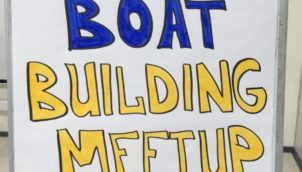 BOAT
BUILDING
MEETUP